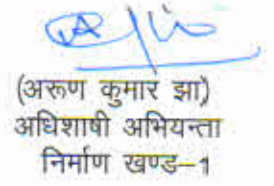 (अरूण कुमार झा)
अधिशाषी अभियन्ता
निर्माण खण्ड–1